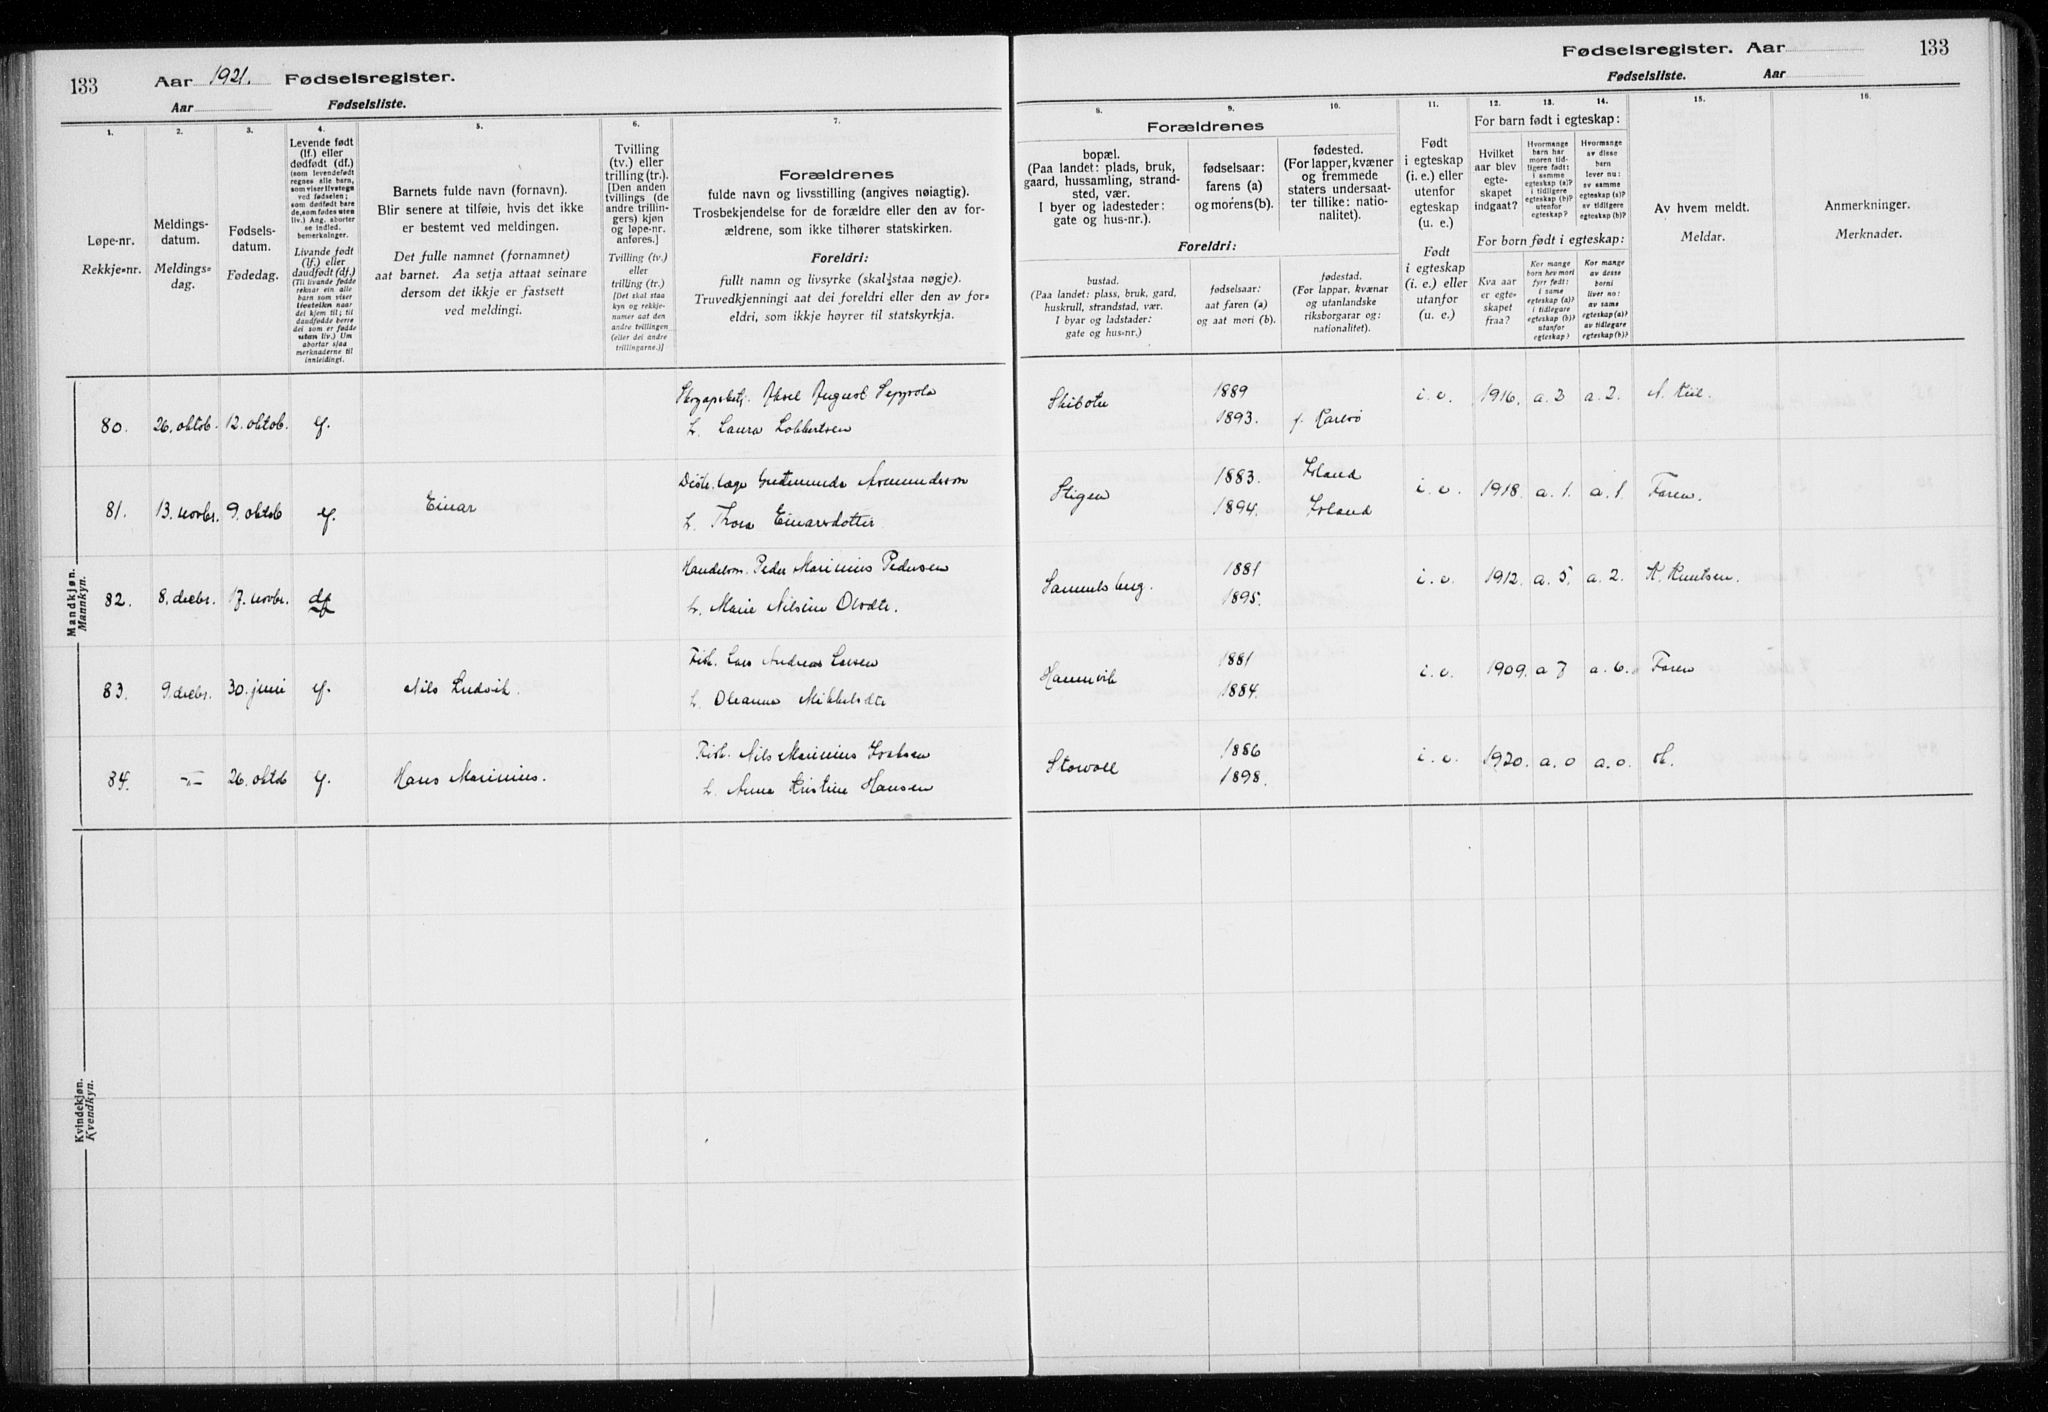 133 Aar 1921. Fødselsregister.
Aar Fødselsliste.
Fødselsregister. Aar 133
Fødselsliste. Aar
1. 2. 3. 4. 5. 6. 7. 8. 9. 10. 11. 12. 13. 14. 15. 16.
Løpe-nr.
Rekkje=nr.
Meldings-
datum.
Meldings=
dag.
Fødsels-
datum.
Fødedag.
Levende født
(lf.) eller
dødfødt (df.)
(som levendefødt
regnes alle barn,
som viser livstegn
ved fødselen;
som dødfødt bare
de, som fødes uten
liv.) Ang. aborter
se indled.
bemerkninger.
Livande født
(lf.) eller
daudfødt (df.)
(Til livande fødde
reknar ein alle
barn som viser
livsteikn naar
dei kjem til; til
daudfødde berre
dei som er fødde
utan liv.) Um
abortar sjaa
merknaderne til
innleidingi.
Barnets fulde navn (fornavn).
Blir senere at tilføie, hvis det ikke
er bestemt ved meldingen.
Det fulle namnet (fornamnet)
aat barnet. Aa setja attaat seinare
dersom det ikkje er fastsett
ved meldingi.
Tvilling
(tv.) eller
trilling (tr.).
[Den anden
tvillings (de
andre trillin-
gers) kjøn
og løpe-nr.
anføres.]
Tvilling (tv.)
eller
trilling (tr.)
[Det skal staa
kyn og rekkje-
numer aat den
andre tvillingen
(eller dei andre
trillingarne.)]
Forældrenes
fulde navn og livsstilling (angives nøiagtig).
Trosbekjendelse for de forældre eller den av for-
ældrene, som ikke tilhører statskirken.
Foreldri:
fullt namn og livsyrke (skal staa nøgje).
Truvedkjenningi aat dei foreldri eller den av for=
eldri, som ikkje høyrer til statskyrkja.
Forældrenes
bopæl.
(Paa landet: plads, bruk,
gaard, hussamling, strand-
sted, vær.
I byer og ladesteder:
gate og hus-nr.).
fødselsaar:
farens (a)
og morens (b).
fødested.
(For lapper, kvæner
og fremmede
staters undersaat-
ter tillike: natio-
nalitet).
Foreldri:
bustad.
(Paa landet: plass, bruk, gard,
huskrull, strandstad, vær.
I byar og ladstader:
gate og hus=nr.)
fødselsaar:
aat faren (a)
og aat mori (b).
fødestad.
(For lappar, kvænar
og utanlandske
riksborgarar og:
nationalitet).
Født
i egteskap
(i. e.) eller
utenfor
egteskap
(u. e.)
Født
i egteskap
(i. e.) eller
utanfor
(u. e.)
For barn født i egteskap:
Hvilket
aar blev
egte-
skapet
indgaat?
Hvormange
barn har
moren tid-
ligere født:
i samme
egteskap (a)?
i tidligere
egteskap (b)?
utenfor
egteskap?
Hvormange
av disse
barn
lever nu:
av samme
egteskap (a)?
av tidligere
egteskap (b)?
For born født i egteskap:
Kva aar
er egte-
skapet
fraa?
Kor mange
born hev mori
fyrr født:
i same
egteskap (a)?
i tidlegare
egteskap (b)?
utanfor
egteskap?
Kor mange
av desse
borni
liver no:
av same
egteskap (a)?
av tidlegare
egteskap (b)?
Av hvem meldt.
Meldar.
Anmerkninger.
Merknader.
Mandkjøn.
Mannkyn.
80. 26. oktob. 12. oktob. lf. Aksel August Seppola Skibotn 1889 i. e. 1916. a. 3 a. 2.
Laura Lobbertsen 1893. f. Karlsø
81. 13. novbr. 9. oktob lf. Einar Distr. læge Gudmundr Asmundsson Stigen 1883. Island i. e. 1918. a. 1. a. 1. Faren.
Thora Einarsdotter 1894. Island
82. 8. decbr. 17. novbr. df Handelsm. Peder Marinius Pedersen Samuelsberg. 1881 i. e. 1912. a. 5. a. 2. K. Knutsen.
Marie Nilsine Olsdtr. 1895.
83. 9. decbr. 30. juni lf. Nils Ludvik. Fisk. Lars Andreas Larsen Hannvik 1881 i. e. 1909. a 7 a. 6. Faren
Oleanna Mikkelsdtr 1884.
84. -"- 26. oktob lf. Hans Marinius. Fisk. Nils Marinius Isaksen Storvoll 1886 i. e. 1920. a. 0 a. 0.
Anna Kristine Hansen 1898.
Kvindekjøn.
Kvendkyn.